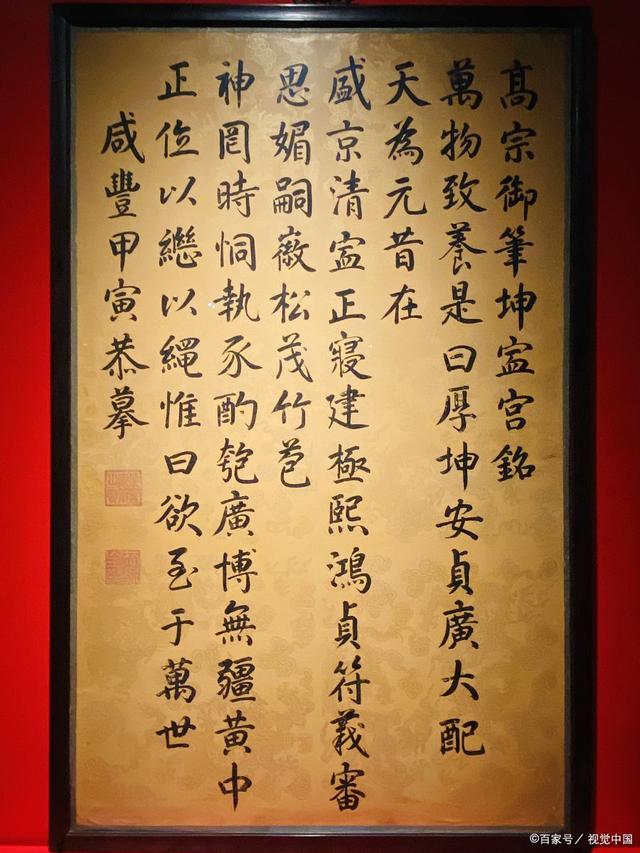 髙宗御筆坤寍宫銘
萬物致養是曰厚坤安貞廣大配
天為元昔在
盛京清寍正寢建極熙鴻貞符義審
思媚嗣徽松茂竹苞
神罔時恫執豕酌匏廣博無疆黄中
正位以繼以繩惟曰欲至于萬世
咸豐甲寅恭摹
©百家号／视觉中国